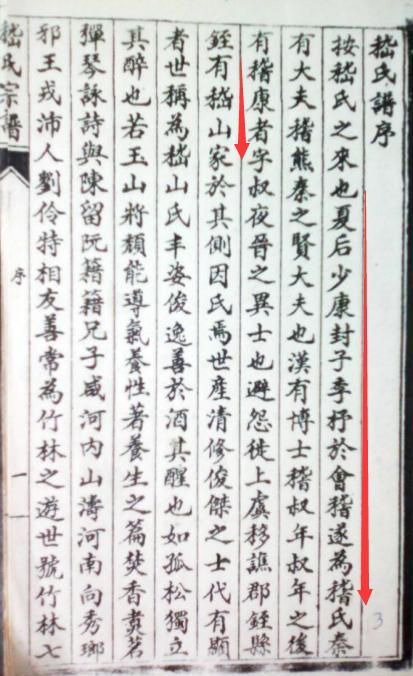 嵇氏譜序
按嵇氏之來也夏后少康封子季杼於會稽遂為稽氏秦
有大夫稽熊秦之賢大夫也漢有博士稽叔年叔年之後
有稽康者字叔夜晉之異士也避怨徙上虞移譙郡銍縣
銍有嵇山家於其側因氏焉世產清修俊傑之士代有顯
者世稱為嵇山氏丰姿俊逸善於酒其醒也如孤松獨立
其醉也若玉山將頹能導氣養性著養生之篇焚香煑茗
彈琴詠詩與陳留阮籍籍兄子咸河內山濤河南向秀瑯
邪王戎沛人劉伶特相友善常為竹林之遊世號竹林七
嵇氏宗譜
序
一
3